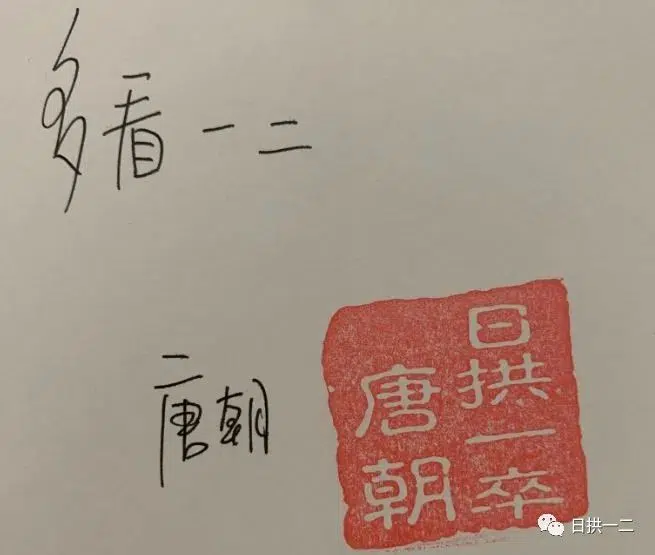 多看一二
唐朝
日拱一卒
唐朝
日拱一二